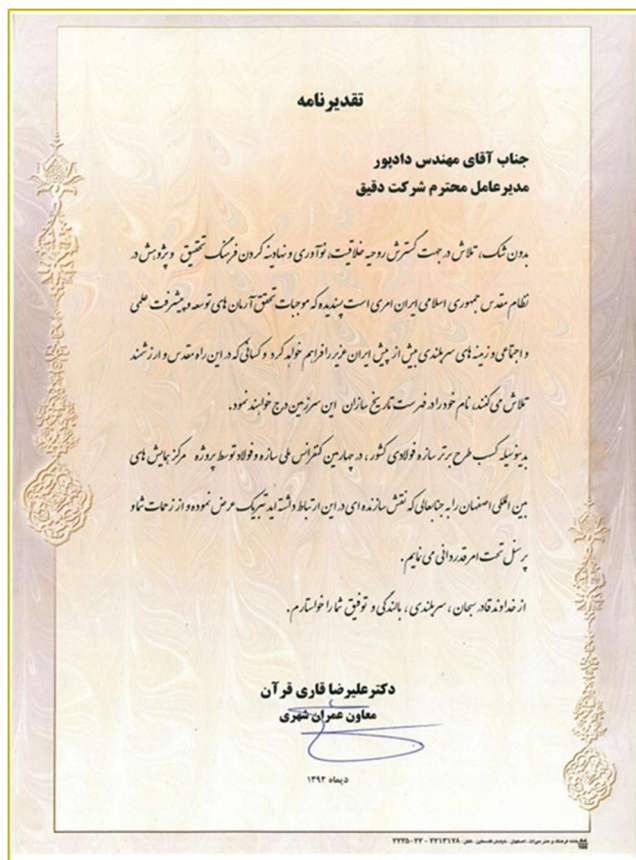 تقدیرنامه
جناب آقای مهندس دادپور
مدیرعامل محترم شرکت دقیق
بدون شک، تلاش در جهت گسترش روحیه خلاقیت، نوآوری و نهادینه کردن فرهنگ تحقیق و پژوهش در
نظام مقدس جمهوری اسلامی ایران امری است پسندیده که موجبات تحقق آرمان های توسعه و پیشرفت علمی
و اجتماعی و زمینه های سربلندی بیش از پیش ایران عزیز را فراهم خواهد کرد و کسانی که در این راه مقدس و ارزشمند
تلاش می کنند، نام خود را در فهرست تاریخ سازان این سرزمین درج خواهند نمود.
بدینوسیله کسب طرح برتر سازه فولادی کشور، در چهارمین کنفرانس ملی سازه و فولاد توسط پروژه مرکز همایش های
بین المللی اصفهان را به جنابعالی که نقش سازنده ای در این ارتباط داشته اید تبریک عرض نموده و از زحمات شما و
پرسنل تحت امر قدردانی می نمایم.
از خداوند قادر سبحان، سربلندی، بالندگی و توفیق شما را خواستارم.
دکتر علیرضا قاری قرآن
معاون عمران شهری
دیماه ۱۳۹۲
خانه فرهنگ و هنر میراث، اصفهان، خیابان فلسطین، تلفن: ۲۲۱۳۱۷۸ - ۲۲۳۵۰۲۲